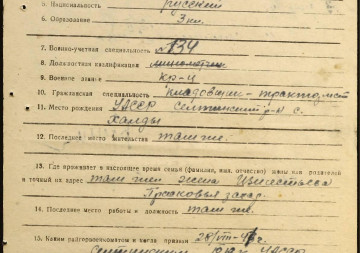 5. Национальность русский
6. Образование 3 кл.
7. Военно-учетная специальность №134
8. Должностная квалификация
9. Военное звание кр-ц
10. Гражданская специальность
11. Место рождения УАССР Селтинский р-н с.
Халды
12. Последнее место жительства там же
13. Где проживает в настоящее время семья (фамилия, имя, отчество) жены или родителей
и точный их адрес там же жена
14. Последнее место работы и должность там же
15. Каким райгорвоенкоматом и когда призван 28/VIII-41г.
Селтинским РВК УАССР